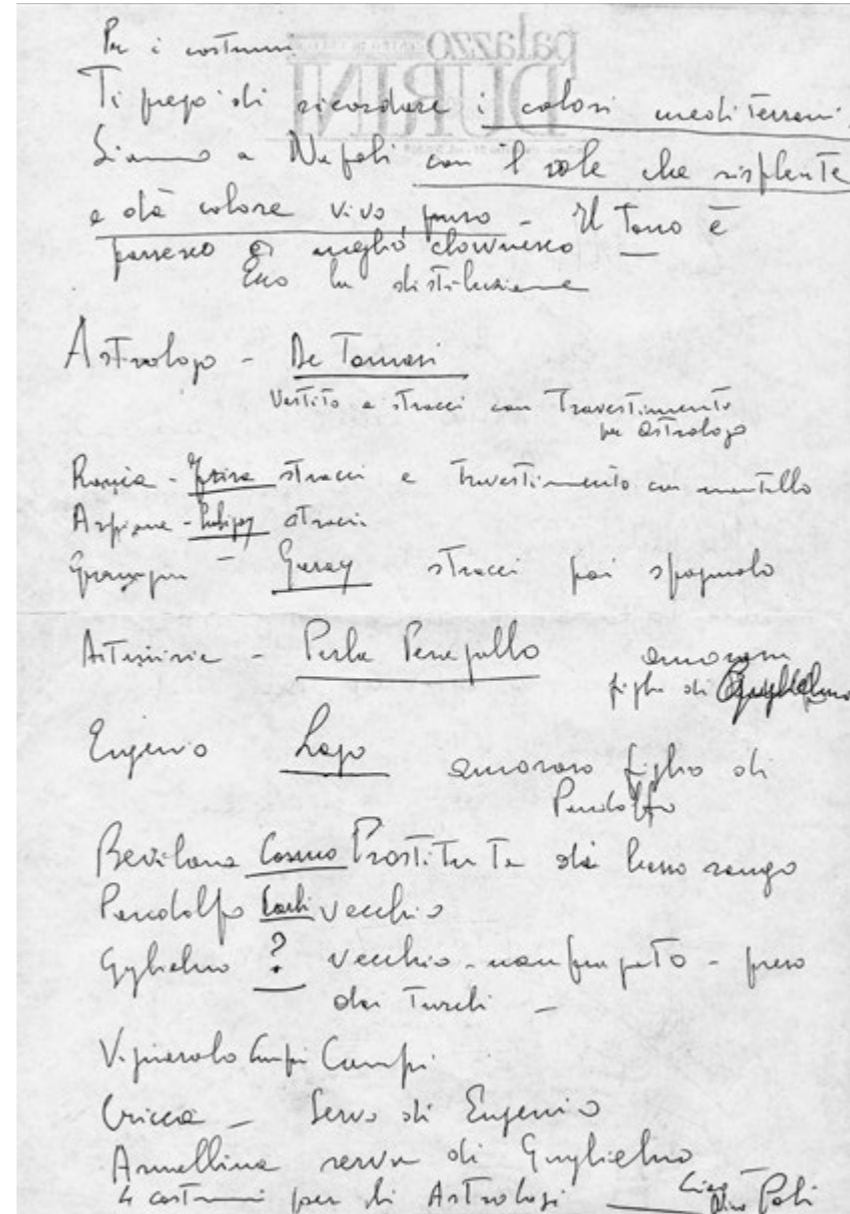 palazzo
DURINI
Per i costumi
Ti prego di ricordare i colori mediterranei.
Siamo a Napoli con il sole che risplende
e dà colore vivo, puro - Il tono è
farsesco o meglio clownesco
Ecco la distribuzione
Astrologo - De Tomasi
Vestito a stracci con Travestimento
per astrologo
Ronca - stracci e travestimento con mantello
Arpione - stracci
Gramigna - Garay stracci poi spagnolo
Artemisia - Perla Peragallo amorosa
figlia di Guglielmo
Eugenio Lago amoroso figlio di
Pandolfo
Bevilona Cosmo Prostituta di basso rango
Pandolfo vecchio
Guglielmo ? vecchio - naufragato - preso
dai Turchi -
Vignarolo Campi Campi
Cricca - Servo di Eugenio
Armellina serva di Guglielmo
4 costumi per li Astrologi Ciao Poli